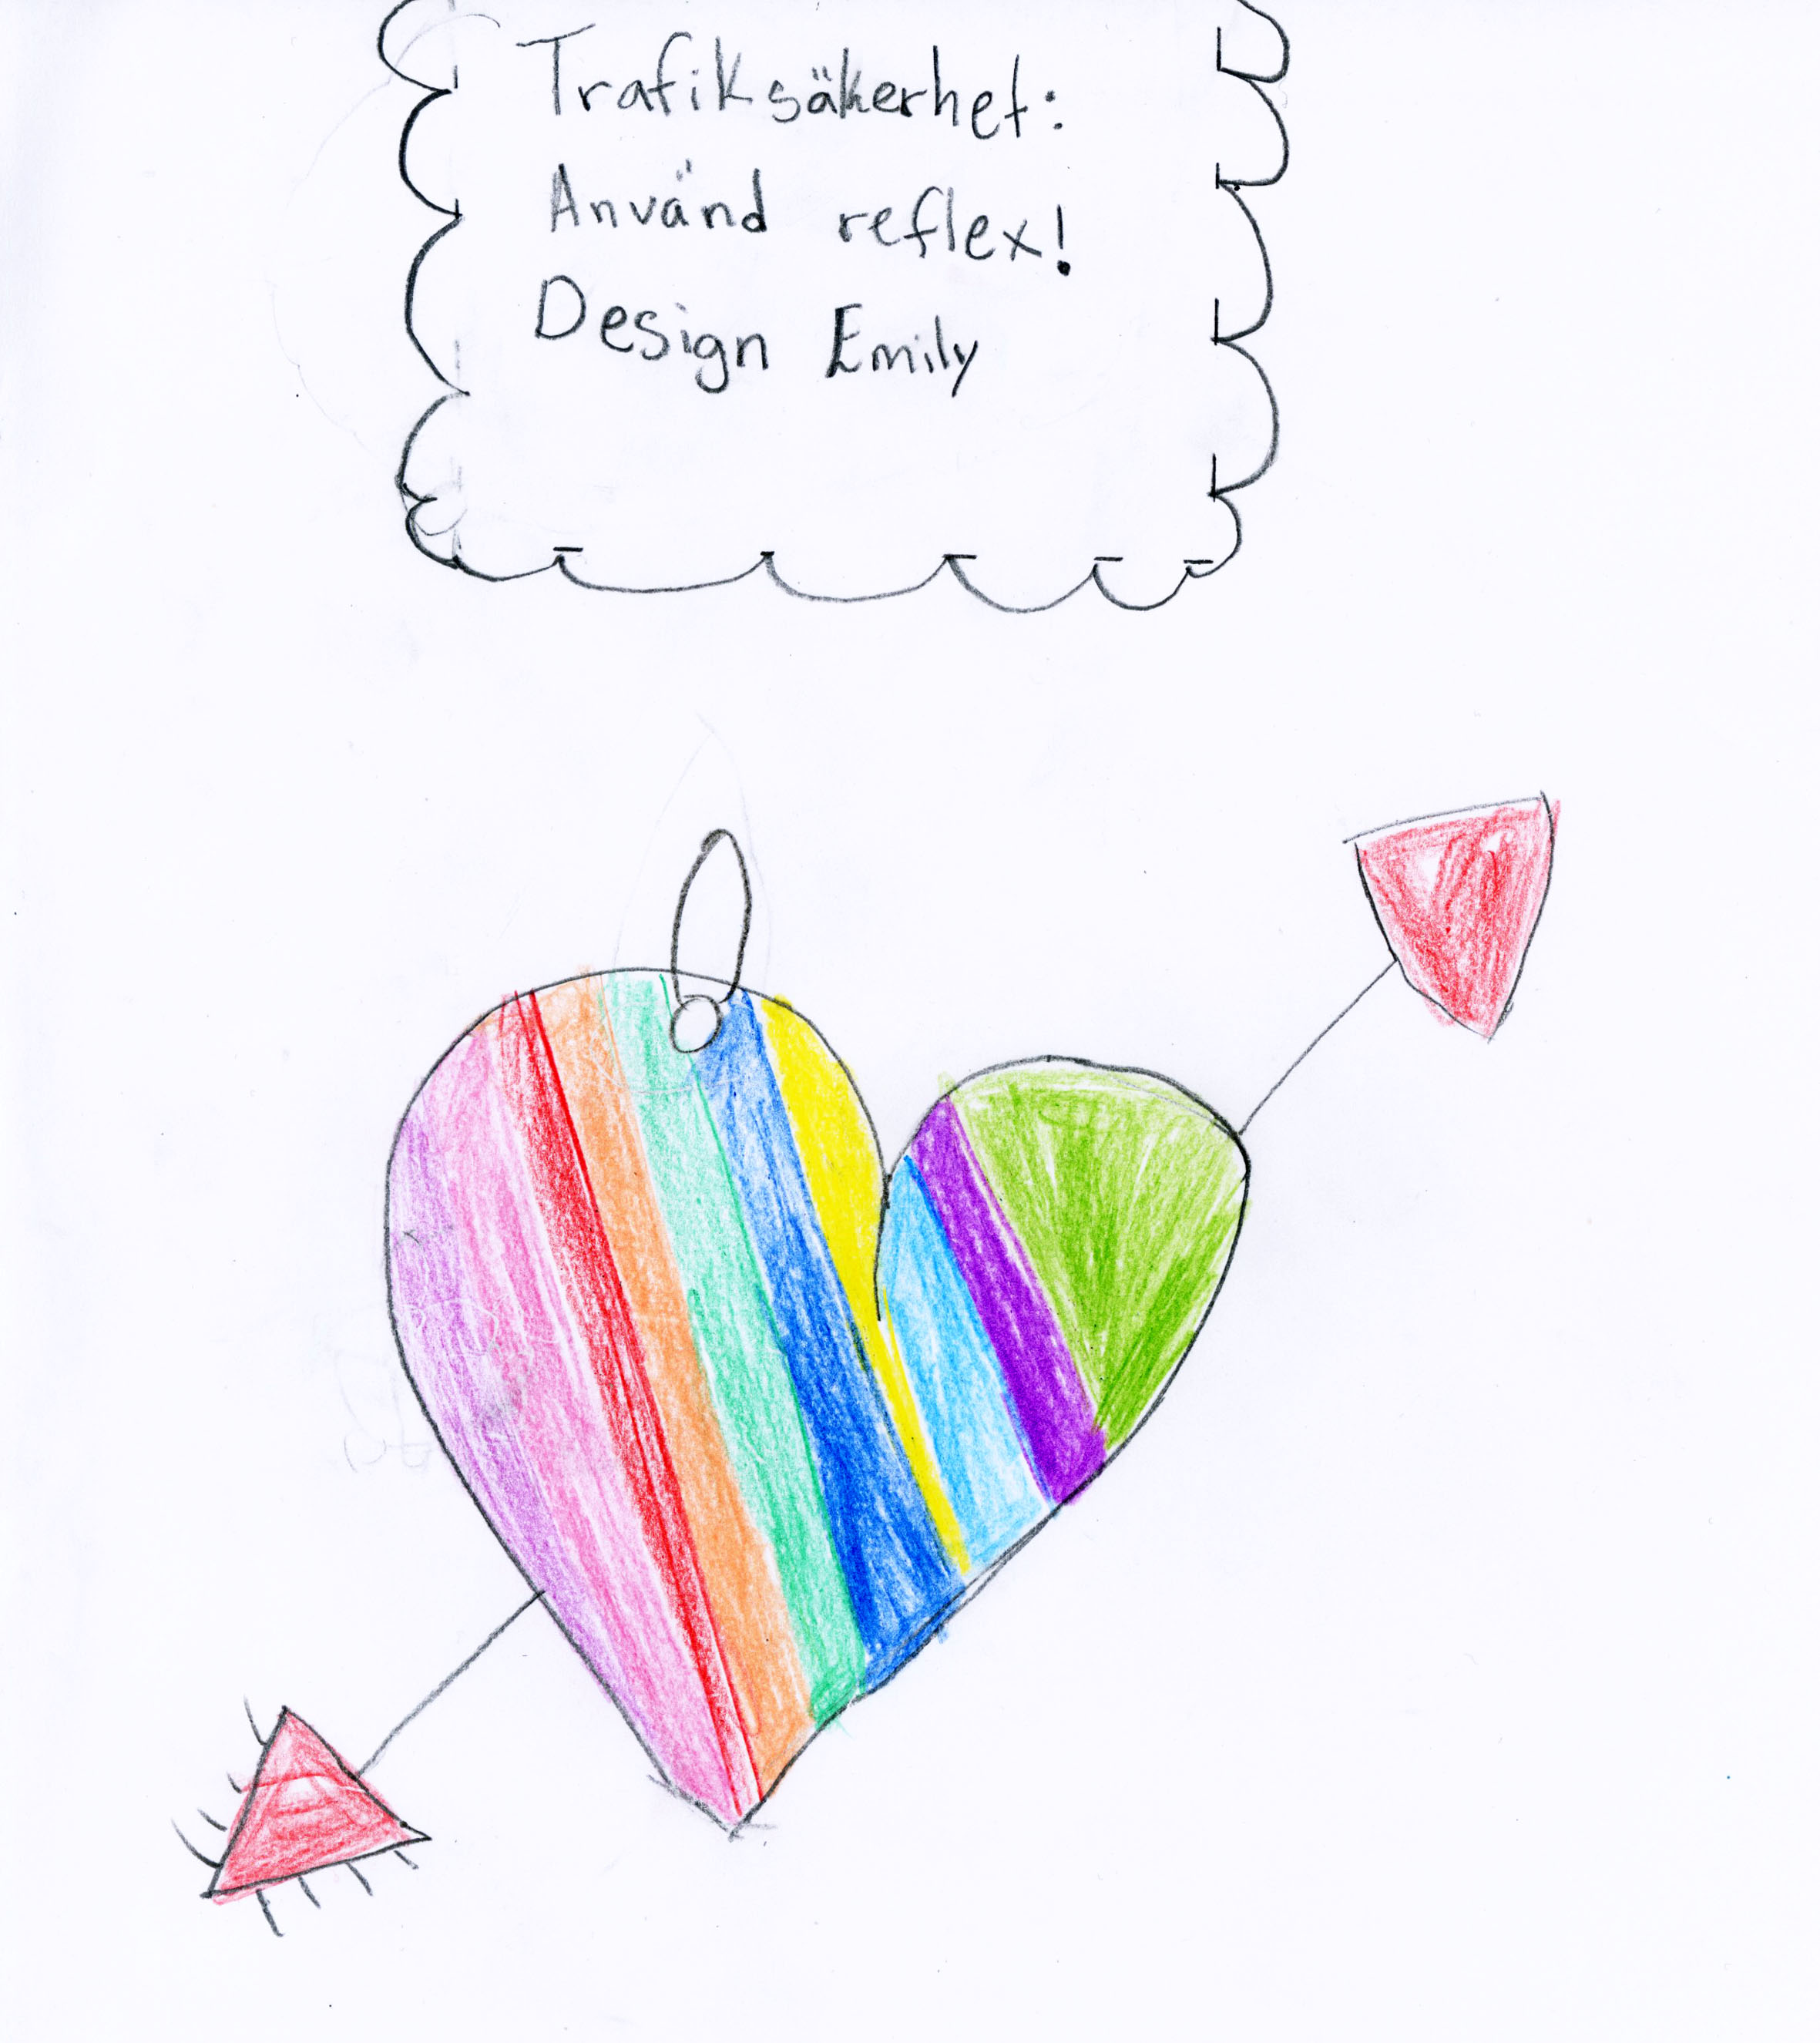 Trafiksäkerhet:
Använd reflex!
Design Emily